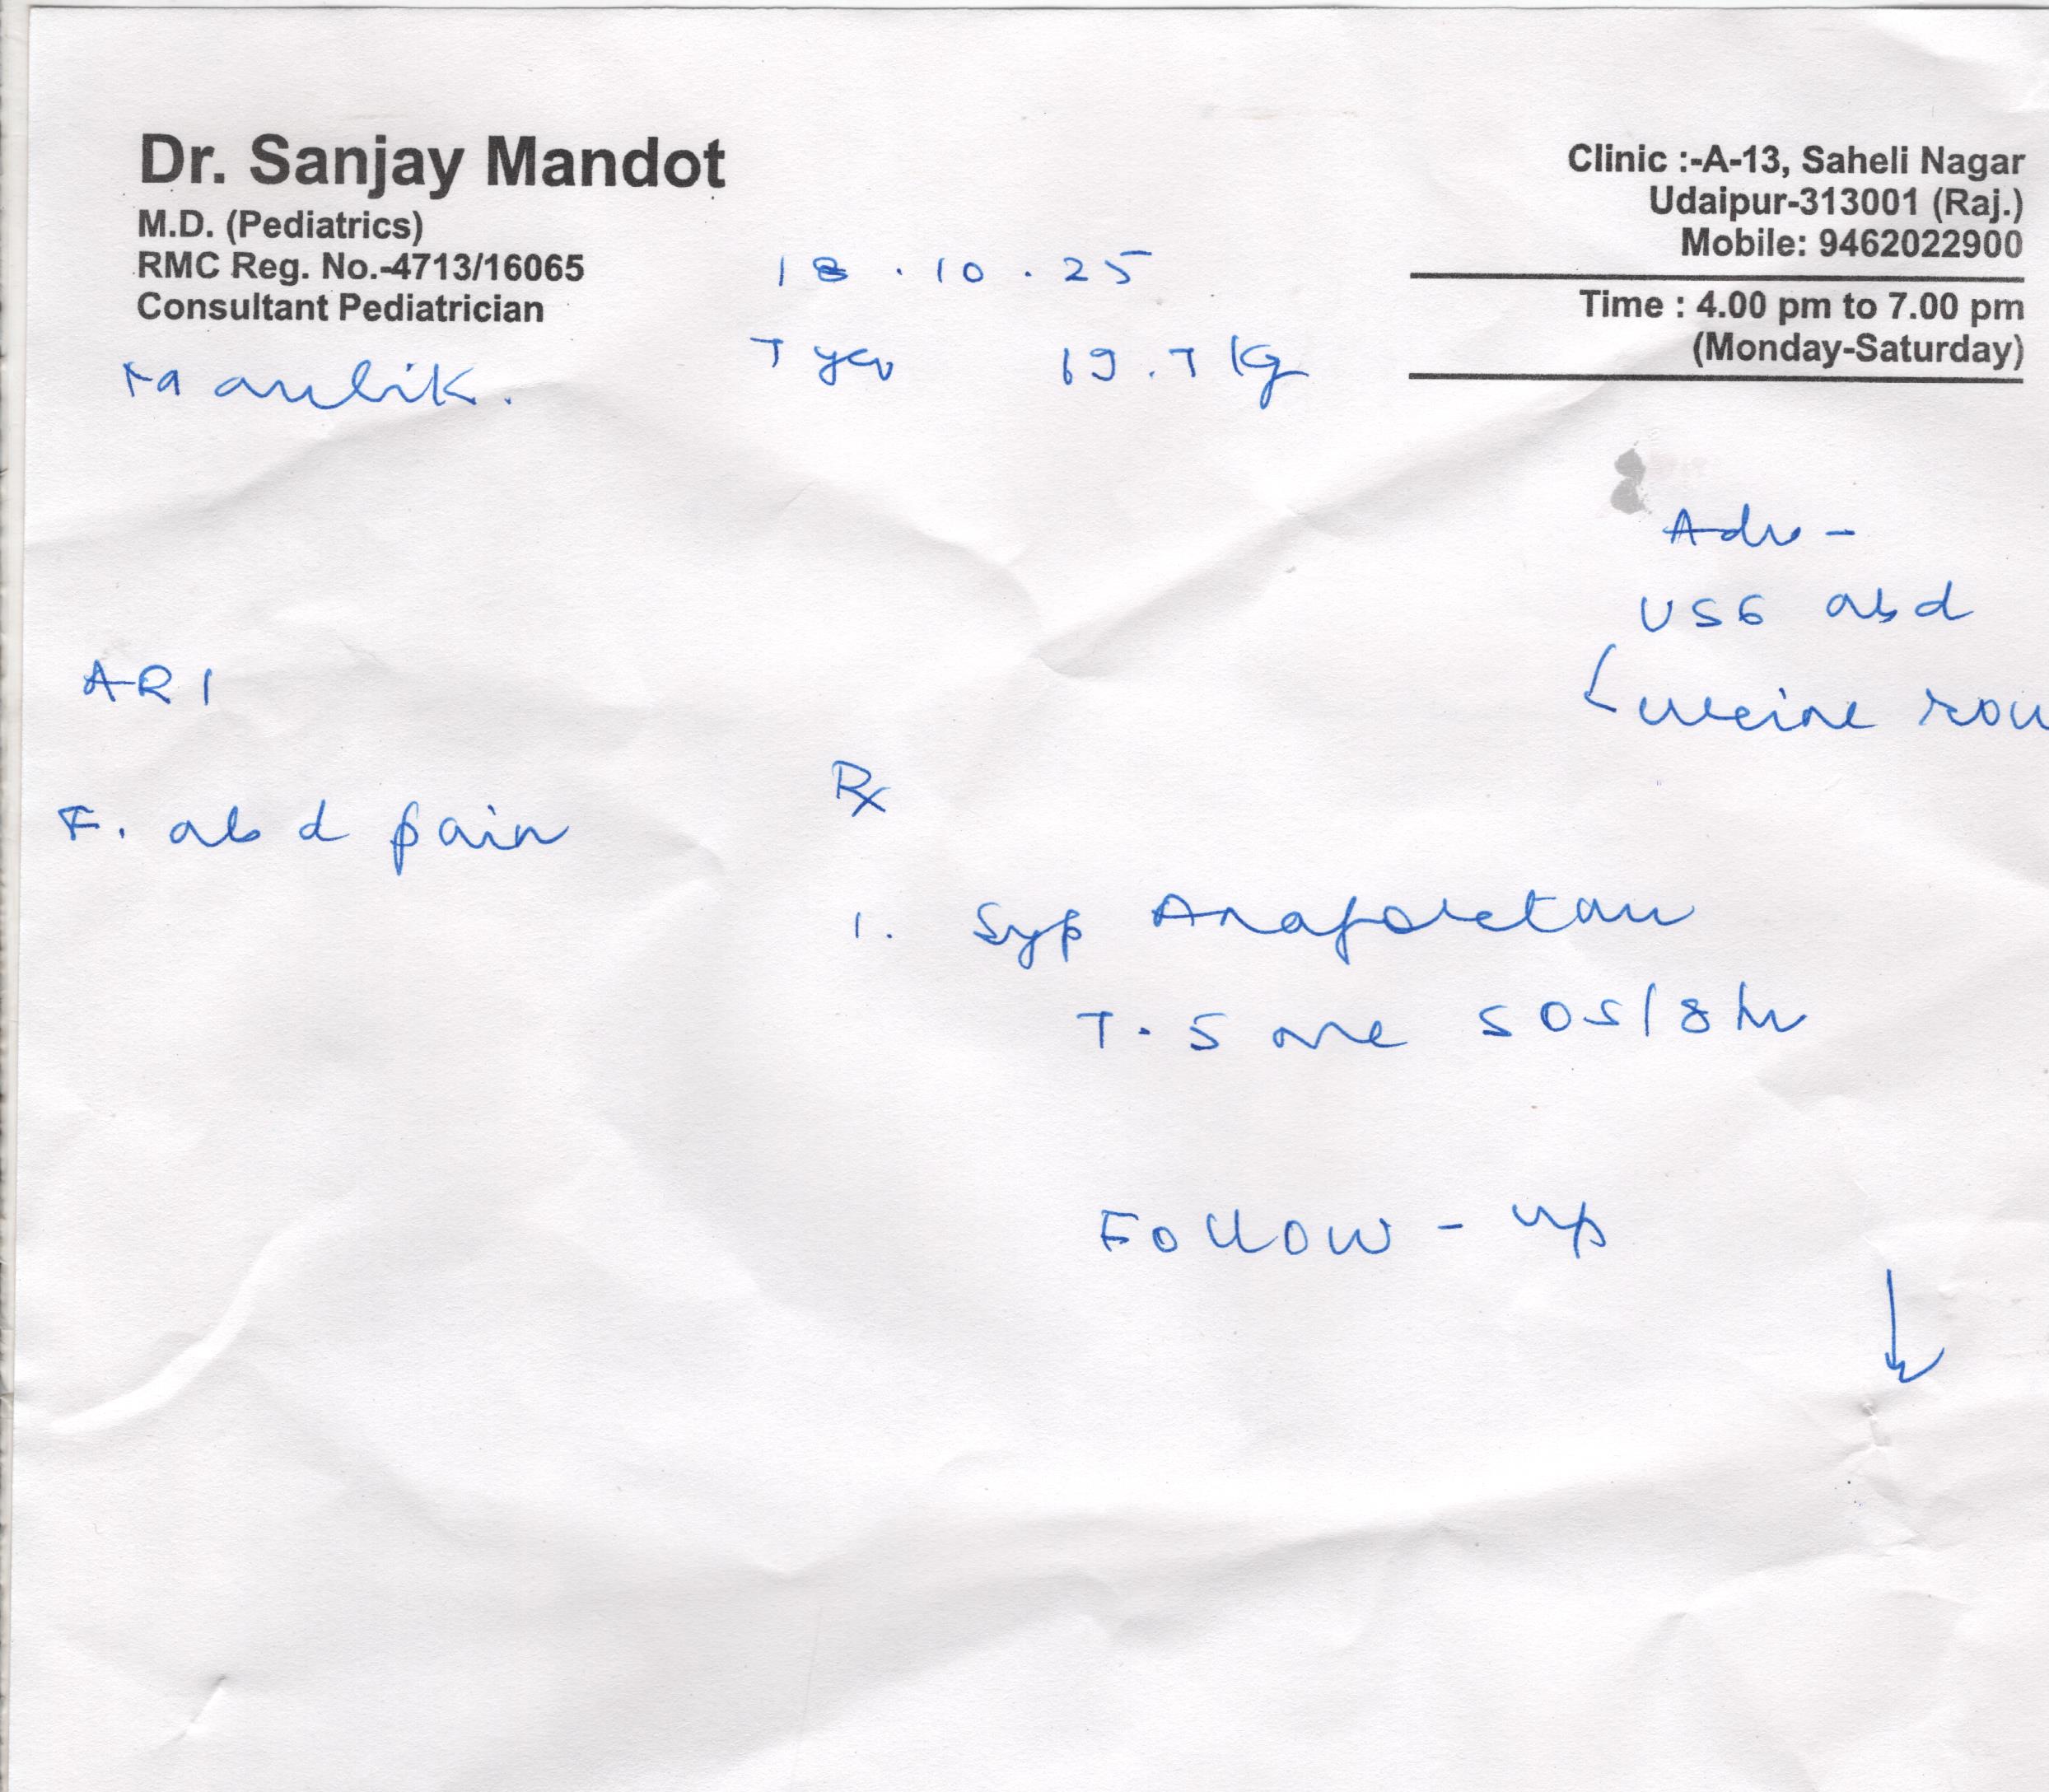 Dr. Sanjay Mandot
M.D. (Pediatrics)
RMC Reg. No.-4713/16065
Consultant Pediatrician
Clinic :-A-13, Saheli Nagar
Udaipur-313001 (Raj.)
Mobile: 9462022900
Time : 4.00 pm to 7.00 pm
(Monday-Saturday)
18.10.25
Maulik.
7 yr 19.7 Kg
Adv -
USG abd
urine rou
ARI
F. abd pain
Rx
1. Syp Anafortan
7.5 ml SOS/8 hr
Follow-up